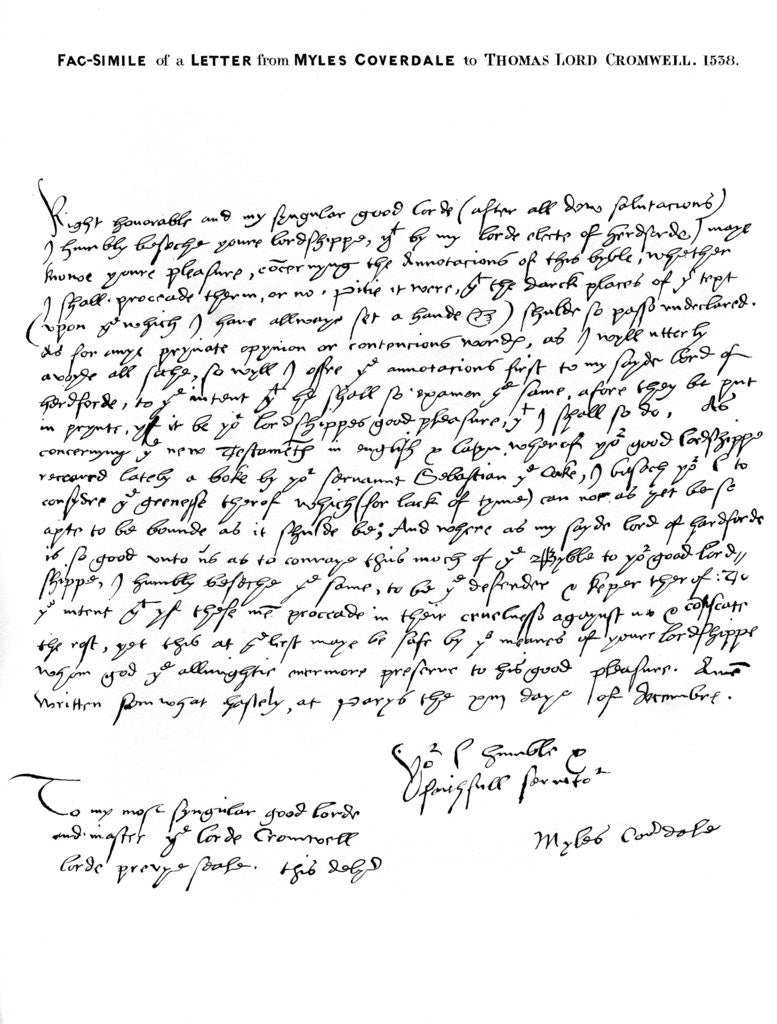 FAC-SIMILE of a LETTER from MYLES COVERDALE to THOMAS LORD CROMWELL. 1538.
Right honorable and my syngular good lorde (after all dew salutacions)
I humbly beseche youre lordshippe, yt by my lorde electe of herdforde, I maye
knowe youre pleasure, cōcernyng the Annotacions of this byble, whether
I shall proceade therin, or no. Pitie it were, yt the darck places of ye text
(vpon ye which I have allwaye set a hande) shulde so passe vndeclared.
As for anye pryuate opynion or contencious wordes, as I wyll vtterly
avoyde all soche, so wyll I offre ye annotacions first to my sayde lord of
herdforde, to ye intent yt he shall so examen ye same, afore they be put
in prynte, yf it be yor lordshippes good pleasure, yt I shall so do. As
concernyng ye new Testamēth in english & latyn, wherof yor good lordshippe
receaved lately a boke by yor servaunt Sebastian ye Coke, I besech yor L to
consydre ye grenesse therof which (for lack of tyme) can not as yet be so
apte to be bounde as it shulde be; And where as my sayde lord of hardforde
is so good vnto vs as to convaye thus moch of ye Byble to yor good lord//
shippe, I humbly beseche ye same, to be ye defender & keper therof: To
ye intent yt yf these mē proceade in their cruelnesse agaynst us & cōfiscate
the rest, yet this at ye lest maye be safe by ye meanes of youre lordshippe
whom god ye allmightie evermore preserve to his good pleasure. Amē
Written somwhat hastely, at Parys the xiij daye of decembre.
Yor L humble &
faithfull servitor
Myles Coūdale
To my most syngular good lorde
and master ye lorde Cromwell
lorde prevye seale. this delyd